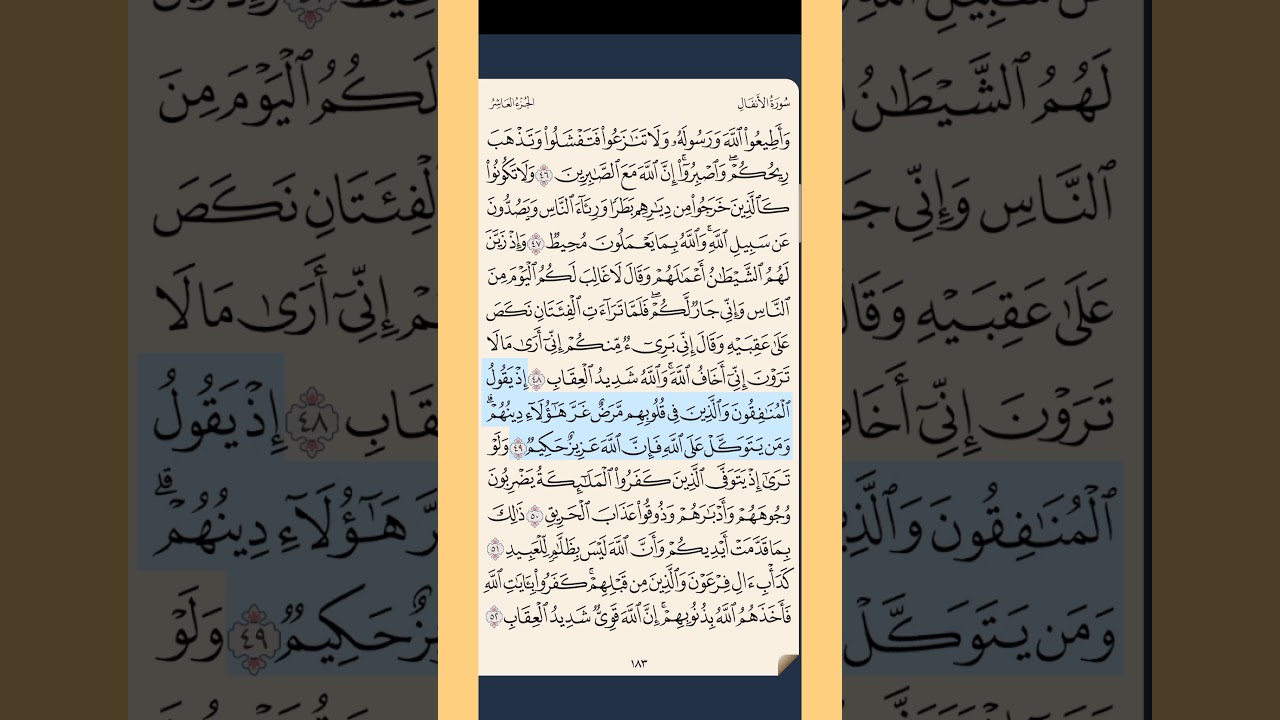 سُورَةُ الأَنفَالِ
الجُزْءُ العَاشِرُ
وَأَطِيعُوا۟ ٱللَّهَ وَرَسُولَهُۥ وَلَا تَنَٰزَعُوا۟ فَتَفْشَلُوا۟ وَتَذْهَبَ
رِيحُكُمْ ۖ وَٱصْبِرُوٓا۟ ۚ إِنَّ ٱللَّهَ مَعَ ٱلصَّٰبِرِينَ ٤٦ وَلَا تَكُونُوا۟
كَٱلَّذِينَ خَرَجُوا۟ مِن دِيَٰرِهِم بَطَرًا وَرِئَآءَ ٱلنَّاسِ وَيَصُدُّونَ
عَن سَبِيلِ ٱللَّهِ ۚ وَٱللَّهُ بِمَا يَعْمَلُونَ مُحِيطٌ ٤٧ وَإِذْ زَيَّنَ
لَهُمُ ٱلشَّيْطَٰنُ أَعْمَٰلَهُمْ وَقَالَ لَا غَالِبَ لَكُمُ ٱلْيَوْمَ مِنَ
ٱلنَّاسِ وَإِنِّى جَارٌ لَّكُمْ ۖ فَلَمَّا تَرَآءَتِ ٱلْفِئَتَانِ نَكَصَ
عَلَىٰ عَقِبَيْهِ وَقَالَ إِنِّى بَرِىٓءٌ مِّنكُمْ إِنِّىٓ أَرَىٰ مَا لَا
تَرَوْنَ إِنِّىٓ أَخَافُ ٱللَّهَ ۚ وَٱللَّهُ شَدِيدُ ٱلْعِقَابِ ٤٨ إِذْ يَقُولُ
ٱلْمُنَٰفِقُونَ وَٱلَّذِينَ فِى قُلُوبِهِم مَّرَضٌ غَرَّ هَٰٓؤُلَآءِ دِينُهُمْ ۗ
وَمَن يَتَوَكَّلْ عَلَى ٱللَّهِ فَإِنَّ ٱللَّهَ عَزِيزٌ حَكِيمٌ ٤٩ وَلَوْ
تَرَىٰٓ إِذْ يَتَوَفَّى ٱلَّذِينَ كَفَرُوا۟ ۙ ٱلْمَلَٰٓئِكَةُ يَضْرِبُونَ
وُجُوهَهُمْ وَأَدْبَٰرَهُمْ وَذُوقُوا۟ عَذَابَ ٱلْحَرِيقِ ٥٠ ذَٰلِكَ
بِمَا قَدَّمَتْ أَيْدِيكُمْ وَأَنَّ ٱللَّهَ لَيْسَ بِظَلَّٰمٍ لِّلْعَبِيدِ ٥١
كَدَأْبِ ءَالِ فِرْعَوْنَ ۙ وَٱلَّذِينَ مِن قَبْلِهِمْ ۚ كَفَرُوا۟ بِـَٔايَٰتِ ٱللَّهِ
فَأَخَذَهُمُ ٱللَّهُ بِذُنُوبِهِمْ ۗ إِنَّ ٱللَّهَ قَوِىٌّ شَدِيدُ ٱلْعِقَابِ ٥٢
١٨٣